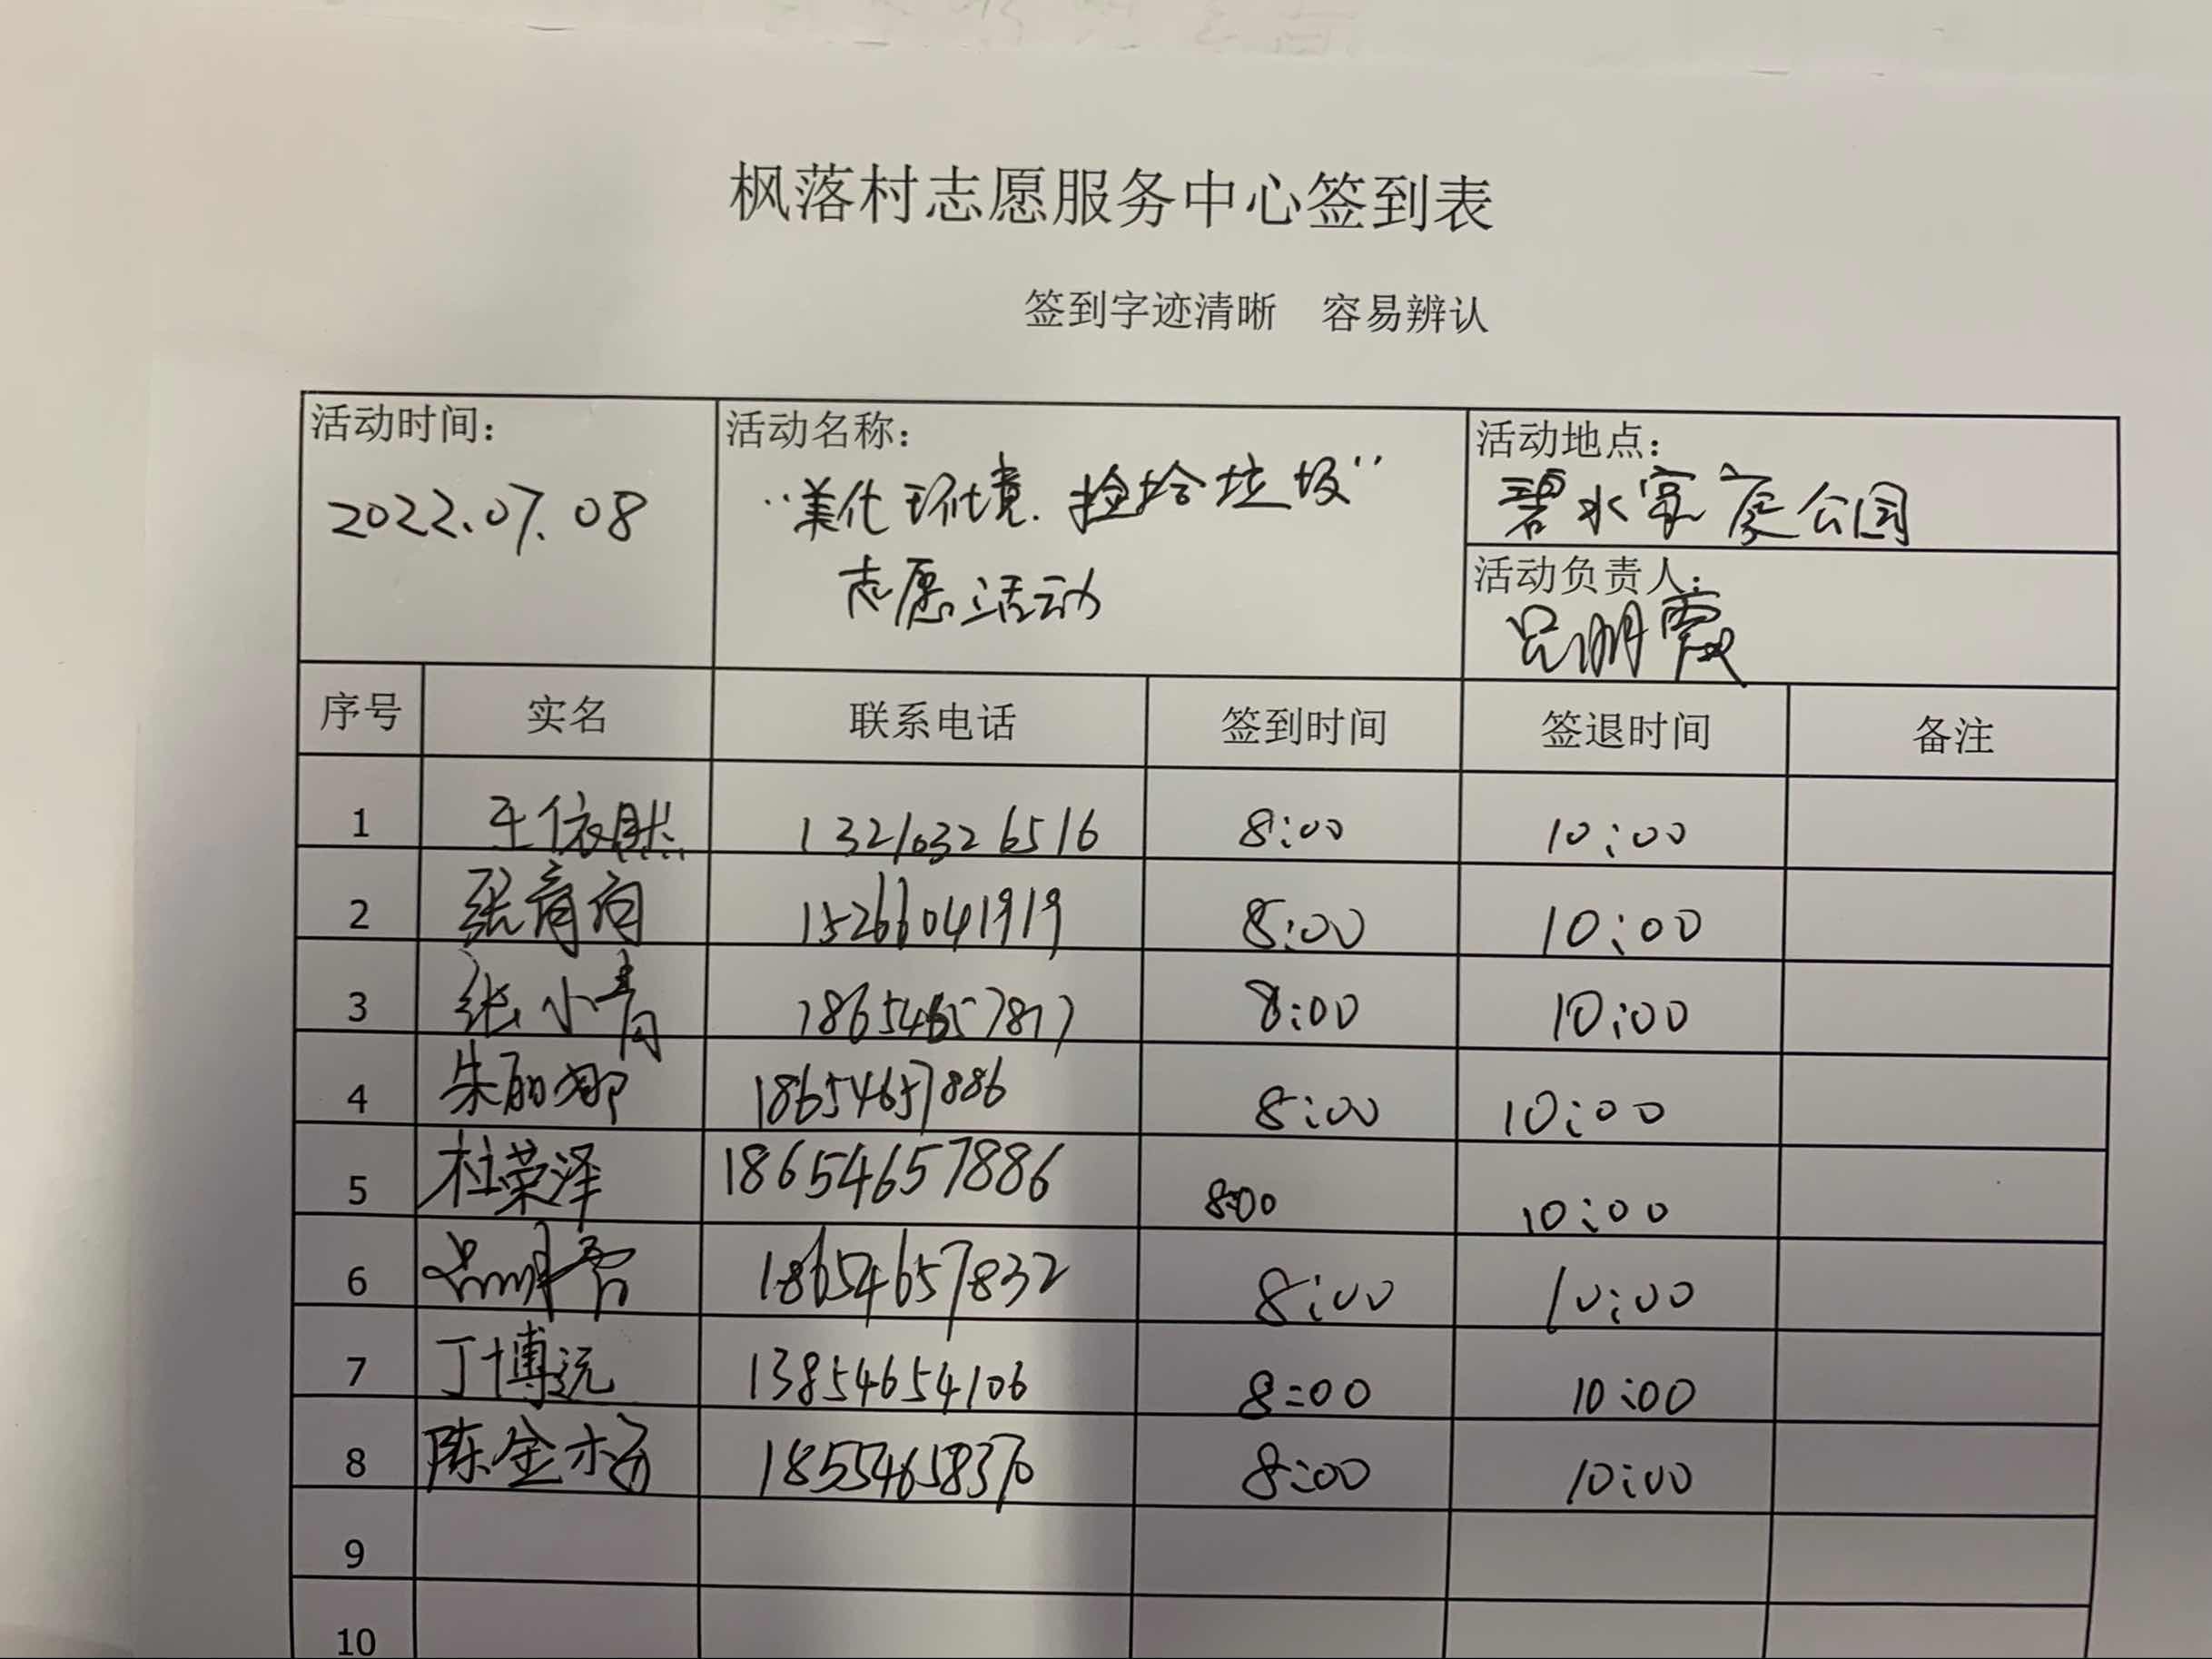 枫落村志愿服务中心签到表
签到字迹清晰 容易辨认
活动时间: 活动名称: 活动地点:
2022.07.08 “美化环境.捡拾垃圾” 碧水家庭公园
志愿活动
活动负责人:
吕明霞
序号 实名 联系电话 签到时间 签退时间 备注
1 王依然 13210326516 8:00 10:00
2 张 15266041919 8:00 10:00
3 张小青 18654657877 8:00 10:00
4 朱丽娜 18654657886 8:00 10:00
5 杜荣泽 18654657886 8:00 10:00
6 18654657832 8:00 10:00
7 丁博远 13854654106 8:00 10:00
8 陈金杨 18554658370 8:00 10:00
9
10